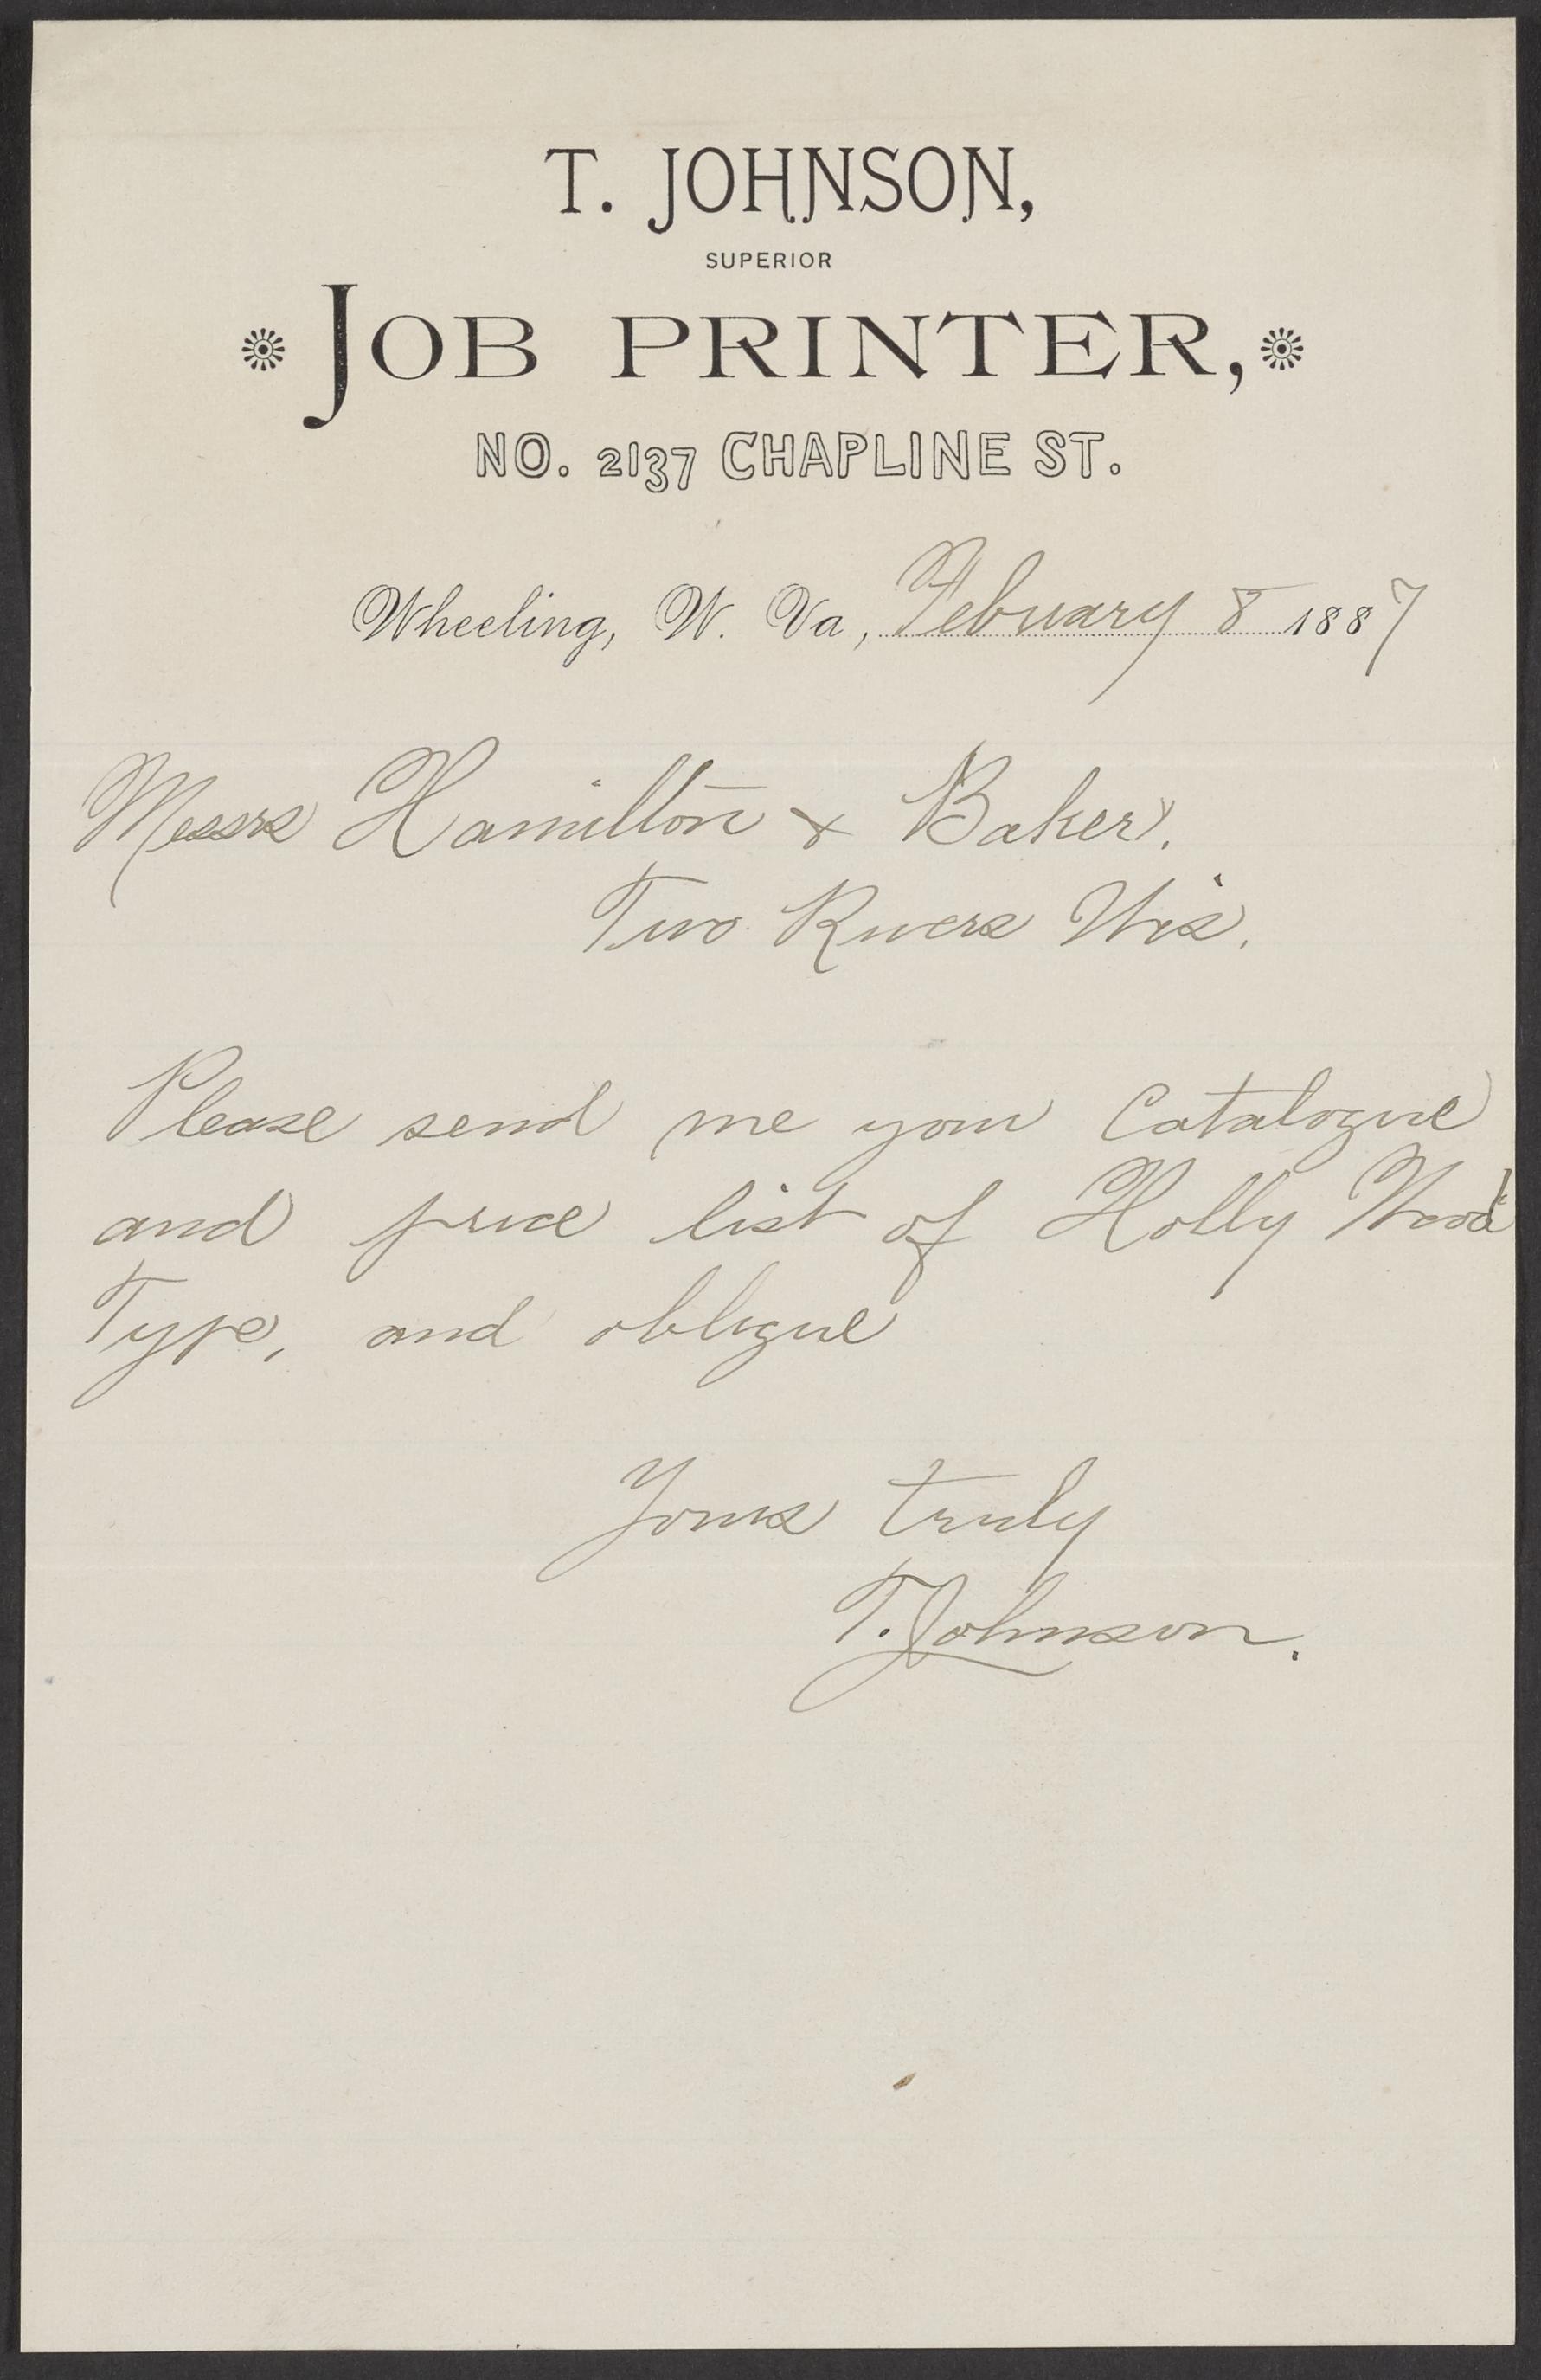 T. JOHNSON,
SUPERIOR
JOB PRINTER,
NO. 2137 CHAPLINE ST.
Wheeling, W. Va, Febuary 8 1887
Messrs Hamilton & Baker.
Two Rivers Wis.
Please send me your Catalogue
and price list of Holly Wood
Type, and oblique
Yours truly
T. Johnson.